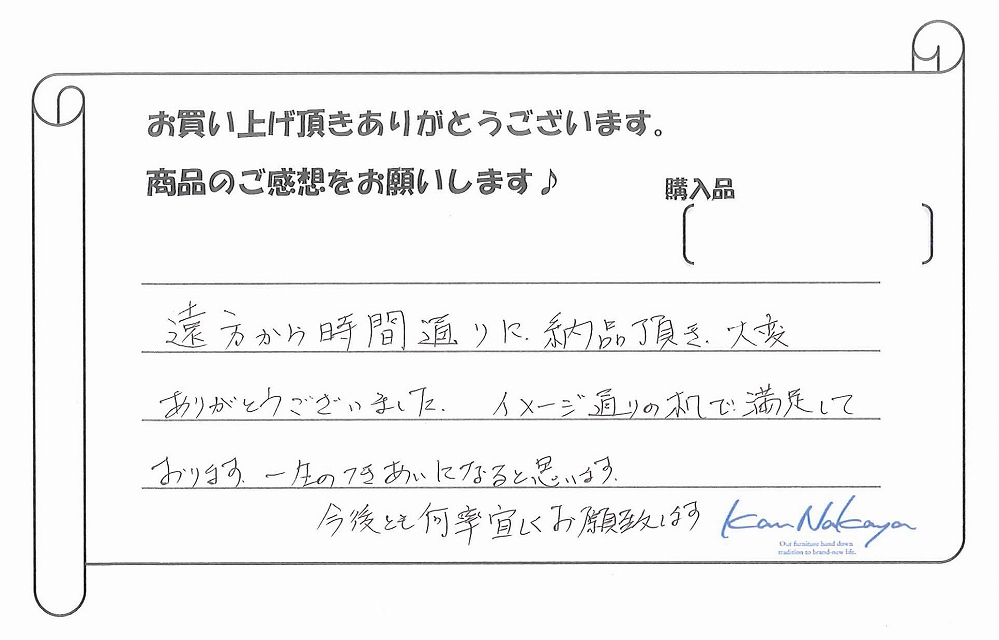 お買い上げ頂きありがとうございます。
商品のご感想をお願いします♪
購入品
遠方から時間通りに、納品頂き、大変
ありがとうございました。 イメージ通りの机で満足して
おります。一生のつきあいになると思います。
今後とも何卒宜しくお願致します
Kan Nakaya
Our furniture hand down
tradition to brand-new life.